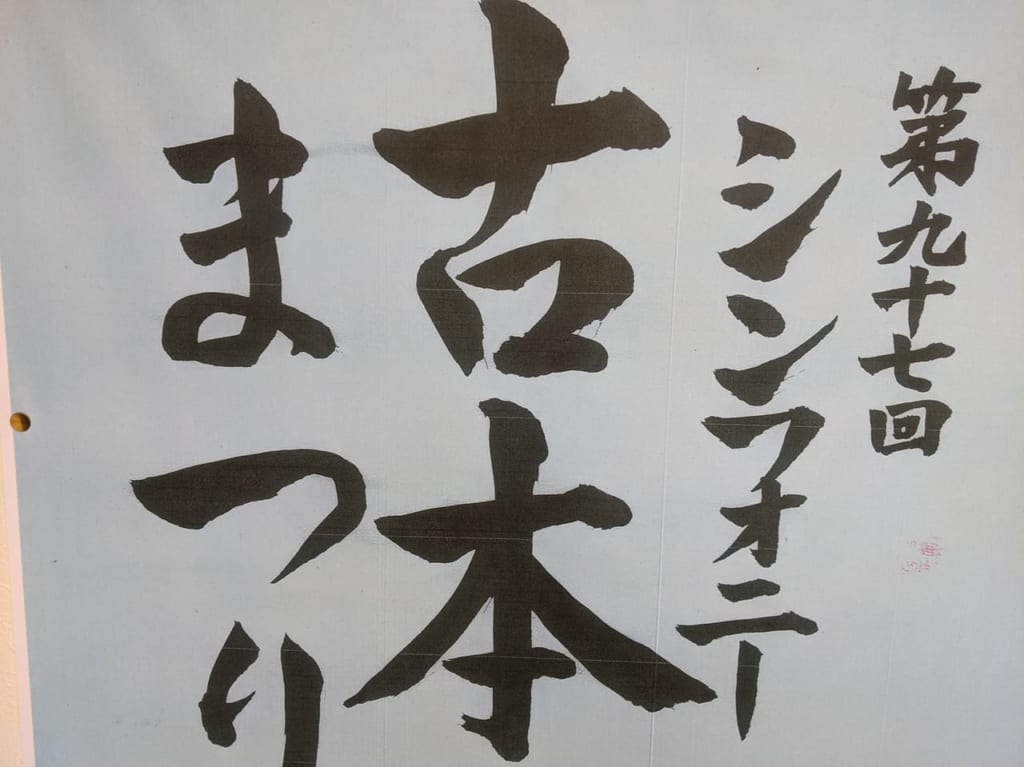 第九十七回
シンフォニー
古本
まつり